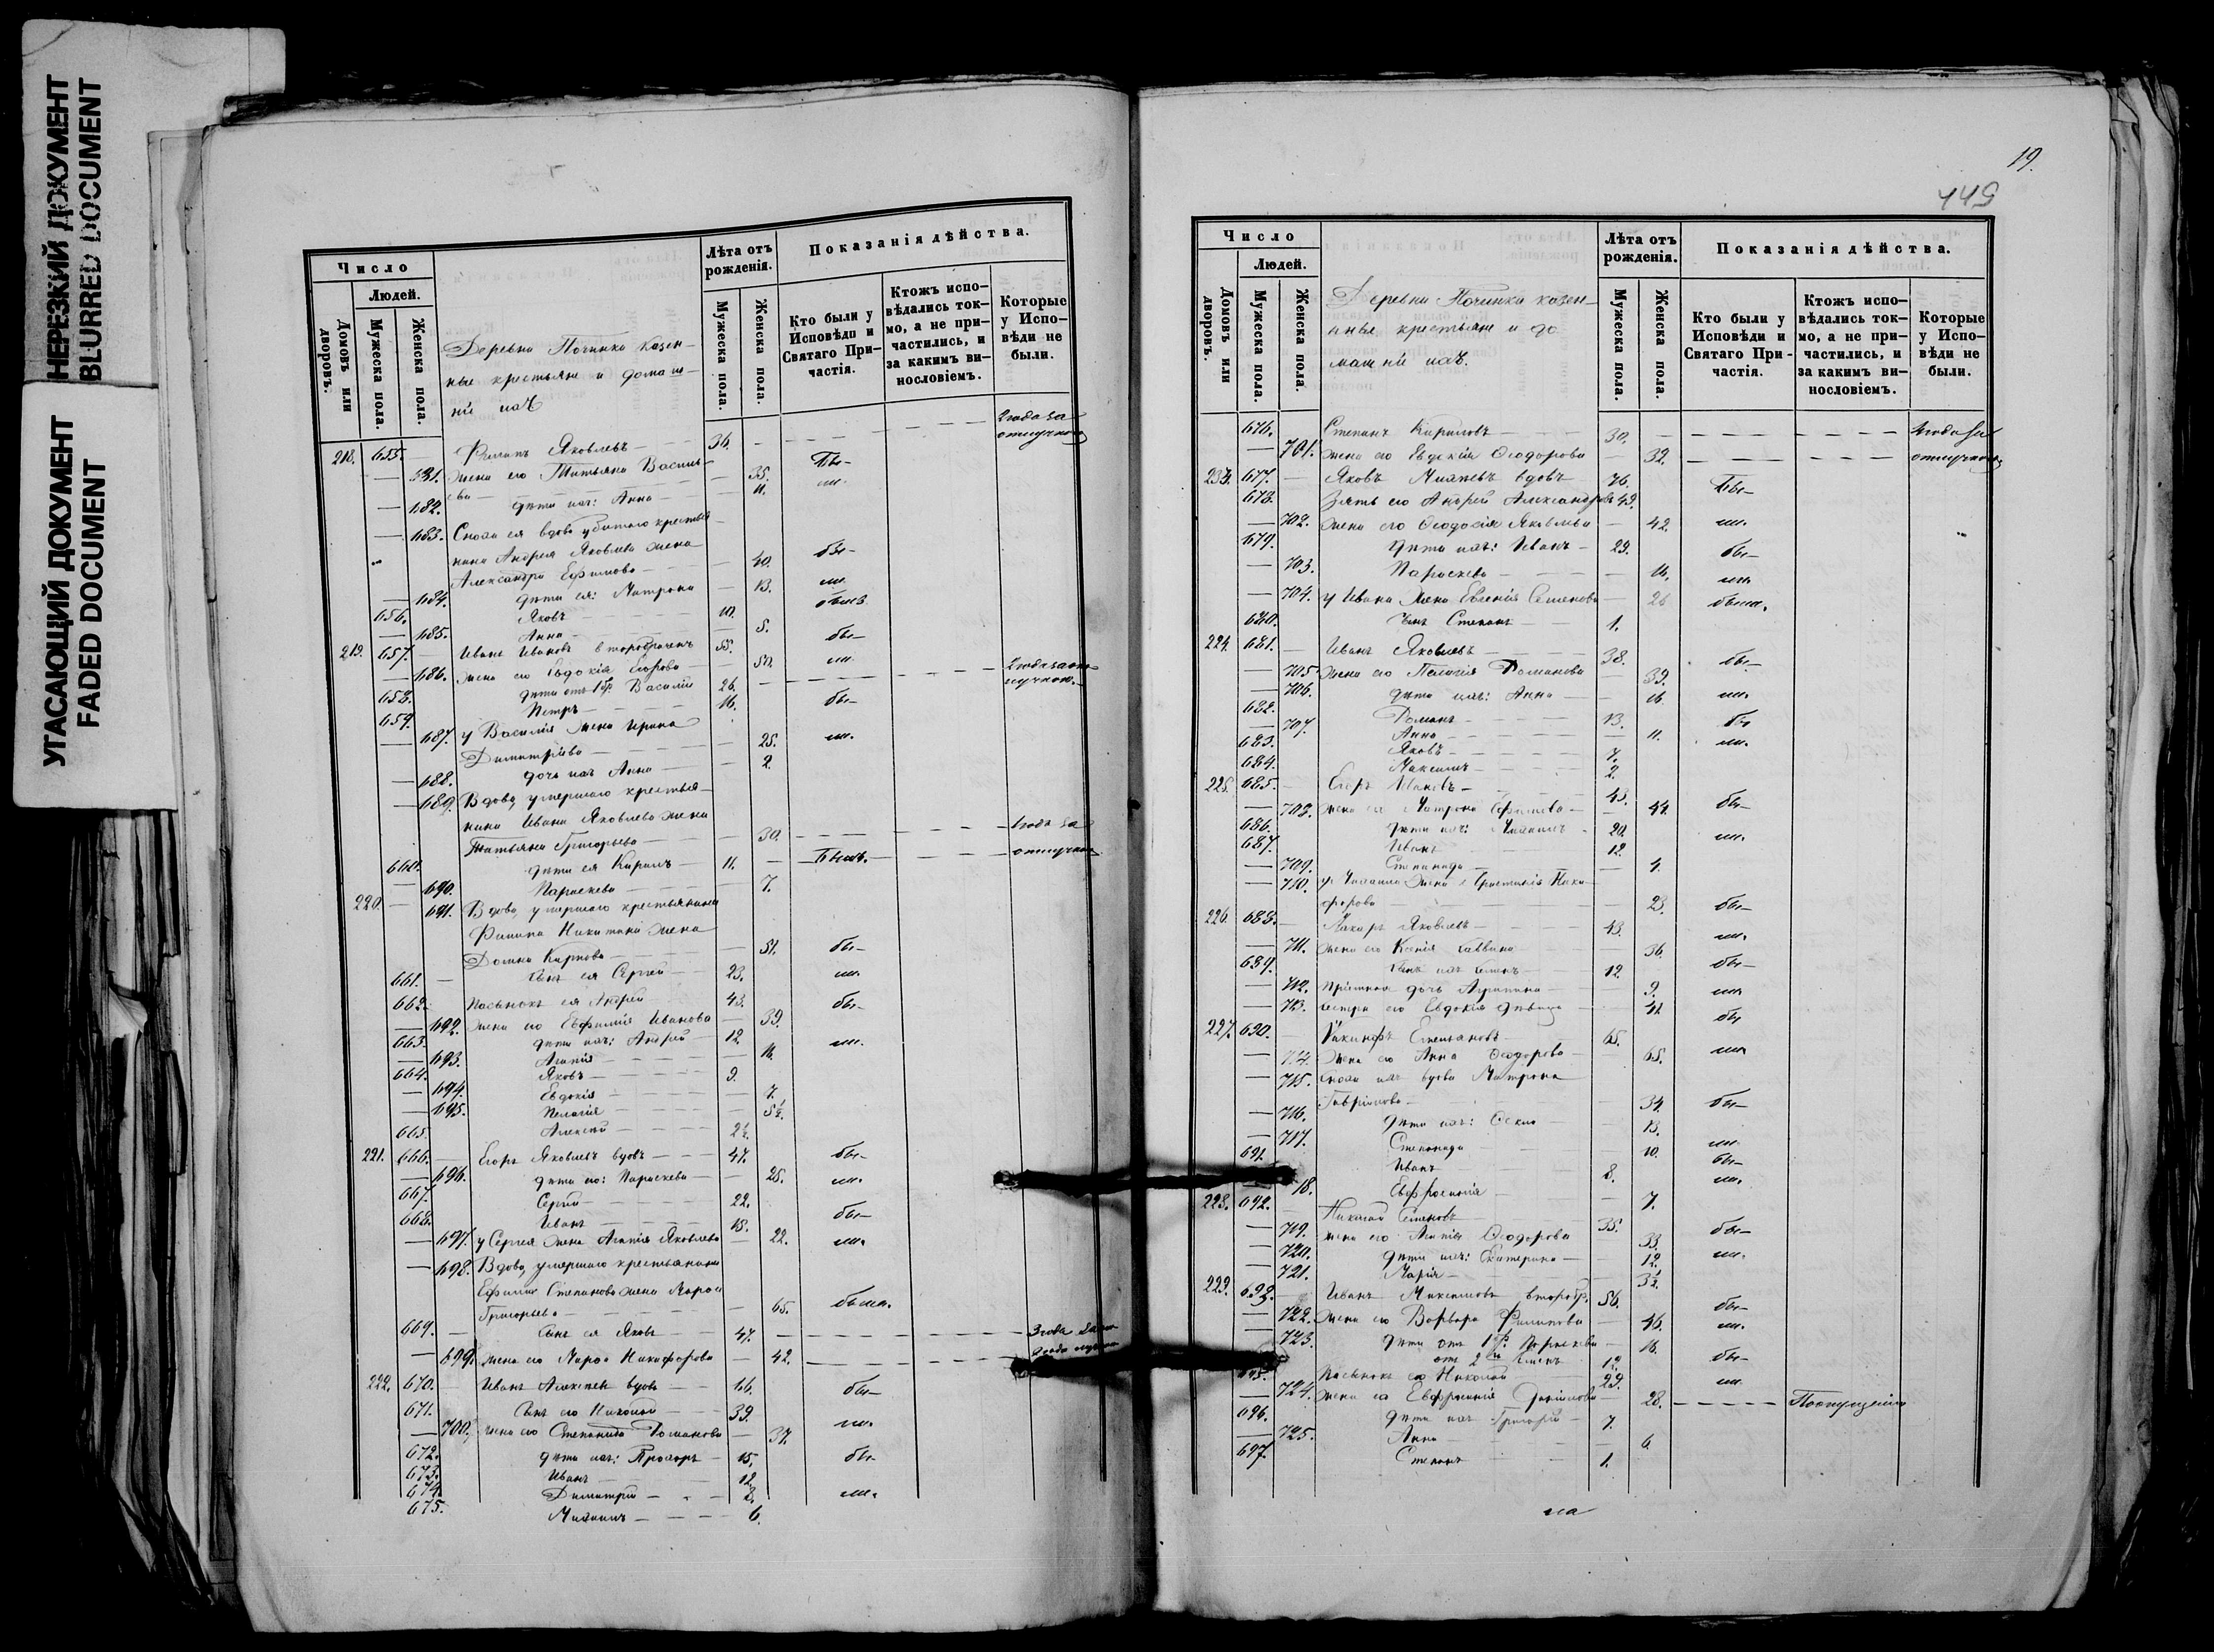 НЕРЕЗКИЙ ДОКУМЕНТ
BLURRED DOCUMENT
УГАСАЮЩИЙ ДОКУМЕНТ
FADED DOCUMENT
Число
Людей.
Домовъ или дворовъ.
Мужеска пола.
Женска пола.
Деревни Починка казен-
ные крестьяне и домаш-
нiи ихъ
Лѣта отъ рожденія.
Мужеска пола.
Женска пола.
Показанія дѣйства.
Кто были у Исповѣди и Святаго Причастія.
Ктожъ исповѣдались токмо, а не причастились, и за какимъ винословіемъ.
Которые у Исповѣди не были.
218. 655. Филипъ Яковлевъ 36. 2 года за отлучкою
681. Жена его Татьяна Василь-
ева 35. бы-
682. дѣти ихъ: Анна 11. ли.
683. Сноха ея вдова убитаго крестья-
нина Андрея Яковлева жена
Александра Ефимова 40. бы-
684. дѣти ея: Матрона 13. ли.
656. Яковъ 10. былъ
685. Анна 5.
219. 657. Иванъ Ивановъ второбраченъ 55. бы-
686. Жена его Евдокія Егорова 50. ли.
658. дѣти отъ 1 бр. Василій 26. 2 года за от-
лучкою.
659. Петръ 16. бы-
687. у Василія жена Ирина
Димитріева 25. ли.
688. дочь ихъ Анна 2.
689. Вдова, умершаго крестья-
нина Ивана Яковлева жена
Татьяна Григорьева 30. 1 годъ за
отлучкою
660. дѣти ея Кирилъ 11. былъ.
690. Параскева 7.
220. 691. Вдова, умершаго крестьянина
Филипа Никитина жена
Домна Карпова 51. бы-
661. сынъ ея Сергей 23. ли.
662. Пасынокъ ея Андрей 43. бы-
692. Жена его Евфимія Иванова 39.
663. дѣти ихъ: Андрей 12. ли.
693. Агапія 11.
664. Яковъ 9.
694. Евдокія 7.
695. Пелагія 5½.
665. Алексѣй 2½.
221. 666. Егоръ Яковлевъ вдовъ 47. бы-
696. дѣти его: Параскева 25. ли.
667. Сергій 22.
668. Иванъ 15. бы-
697. у Сергея жена Агапія Яковлева 22. ли.
698. Вдова, умершаго крестьянина
Ефима Степанова жена Марѳа
Григорьева 65. была.
669. Сынъ ея Яковъ 47.
699. Жена его Марѳа Никифорова 42.
222. 670. Иванъ Алексѣевъ вдовъ 66. бы-
671. Сынъ его Николай 39.
700. Жена его Степанида Романова 37. ли.
672. дѣти ихъ: Прохоръ 15. бы-
673. Иванъ 12.
674. Димитрій 8. ли.
675. Михаилъ 6.
19.
445
Число
Людей.
Домовъ или дворовъ.
Мужеска пола.
Женска пола.
Деревни Починка казен-
нные крестьяне и до
машнiи ихъ.
Лѣта отъ рожденія.
Мужеска пола.
Женска пола.
Показанія дѣйства.
Кто были у Исповѣди и Святаго Причастія.
Ктожъ исповѣдались токмо, а не причастились, и за какимъ винословіемъ.
Которые у Исповѣди не были.
676. Степанъ Кириловъ 30.
701. Жена его Евдокія Ѳеодорова 32. отлучкою
223. 677. Яковъ вдовъ 76. бы-
678. Зять его Андрей Александровъ 49.
702. Жена его Ѳеодосія Яковлева 42. ли.
679. дѣти ихъ: Иванъ 29. бы-
703. Параскева 16. ли.
704. у Ивана жена Евгенія Семенова 26 была.
680. сынъ Степанъ 1.
224. 681. Иванъ Яковлевъ 38. бы-
705. Жена его Пелагія Романова 39. ли.
706. дѣти ихъ: Анна 16.
682. Романъ 13. бы
707. Анна 11. ли.
683. Яковъ 7.
684. Максимъ 2.
225. 685. Егоръ Ивановъ 43. бы-
708. Жена его Матрона Ефимова 44.
686. дѣти ихъ: Михаилъ 20. ли.
687. Иванъ 12.
709. Степанида 4.
710. у Михаила жена Христинія Ники-
форова 23. бы-
226. 688. Макаръ Яковлевъ 43. ли.
711. Жена его Ксенія Саввина 36. бы-
689. сынъ ихъ 12.
712. дочь Агрипина 9. ли
713. Сестра его Евдокія дѣвица 41 бы
227. 690. Іакинфъ Степановъ 65.
714. Жена его Анна Ѳеодорова 65. ли
715. Сноха ихъ вдова Матрона
Гаврилова 34. бы-
716. дѣти ихъ: Ѳекла 13. ли
717. Степанида 10. бы-
691. Иванъ 8. ли.
18. Евфросинія 7.
228. 692. Николай Семеновъ 35. бы-
719. Жена его Агапія Ѳеодорова 33. ли.
720. дѣти ихъ: Екатерина 12.
721. Марія 3½.
229. 693. Иванъ Максимовъ второбр. 56. бы-
722. Жена его Варвара Филипова 46. ли.
723. дѣти отъ 1 бр. Параскева 16. бы-
отъ 2й 12.
695. Пасынокъ его Николай 29. ли
724. Жена его Евфросинія 28. По опущенію
696. дѣти ихъ Григорій 7.
725. Анна 6.
697. Степанъ 1.
на